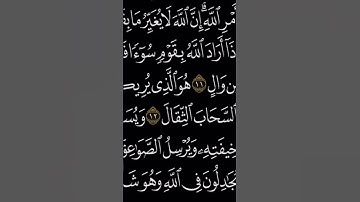 أَمْرِ ٱللَّهِۗ إِنَّ ٱللَّهَ لَا يُغَيِّرُ مَا بِقَ
ذَآ أَرَادَ ٱللَّهُ بِقَوْمٖ سُوٓءٗا فَ
ن وَالٍ ١١ هُوَ ٱلَّذِي يُرِيك
ٱلسَّحَابَ ٱلثِّقَالَ ١٢ وَيُسَ
خِيفَتِهِۦ وَيُرْسِلُ ٱلصَّوَٰعِقَ
جَٰدِلُونَ فِي ٱللَّهِ وَهُوَ شَ